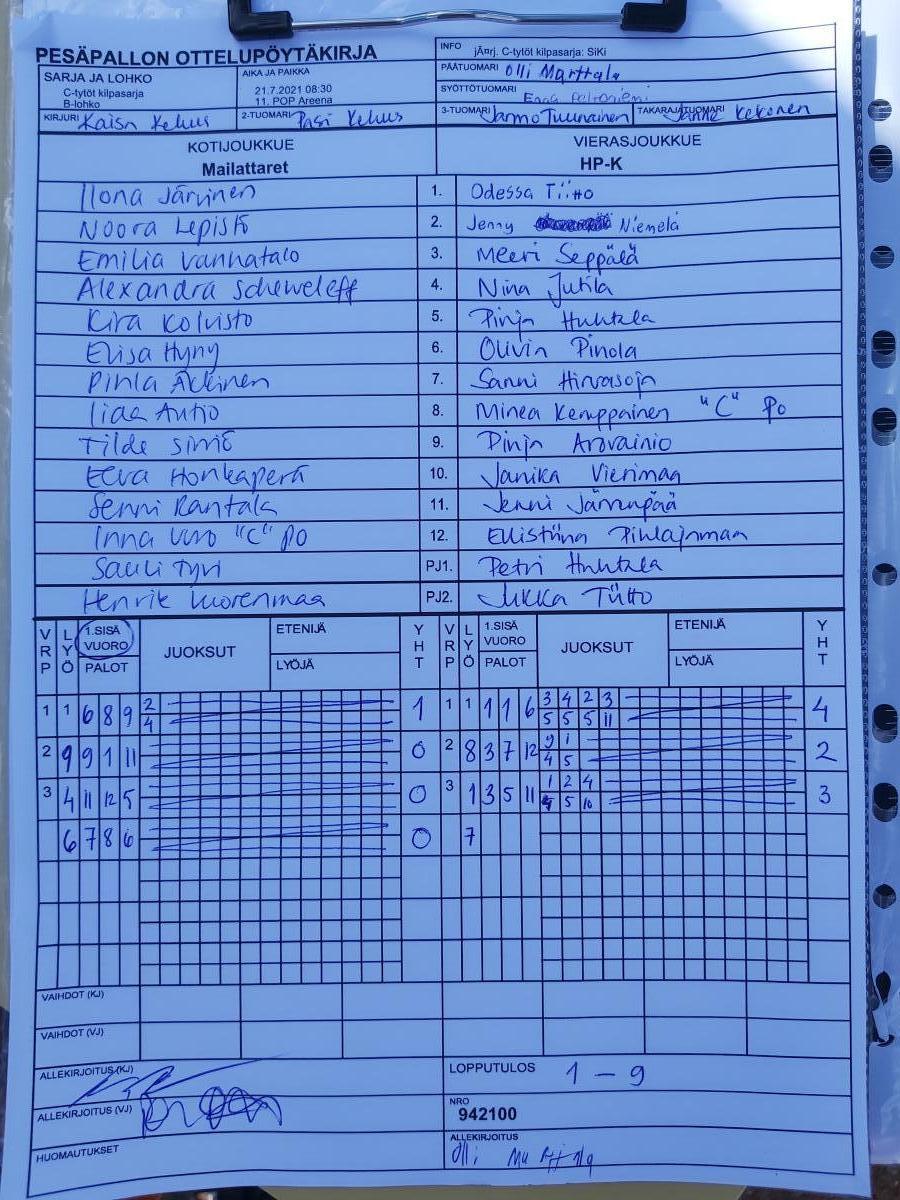 PESÄPALLON OTTELUPÖYTÄKIRJA
INFO jÃ¤rj. C-tytöt kilpasarja: SiKi
SARJA JA LOHKO
C-tytöt kilpasarja
B-lohko
AIKA JA PAIKKA
21.7.2021 08:30
11. POP Areena
PÄÄTUOMARI Olli Marttala
SYÖTTÖTUOMARI
KIRJURI Kaisa Kehus
2-TUOMARI Pasi Kehus
3-TUOMARI Jarmo Tuunainen
TAKARAJATUOMARI Janne Kekonen
KOTIJOUKKUE
Mailattaret
VIERASJOUKKUE
HP-K
Ilona Järvinen 1. Odessa Tiitto
Noora Lepistö 2. Jenny Niemelä
Emilia Vannatalo 3. Meeri Seppälä
Alexandra Scheweleff 4. Nina Jutila
Kira Koivisto 5. Pinja Huhtala
Elisa Hyny 6. Olivia Pinola
Pihla Äkkinen 7. Sanni Hirvasoja
Iida Autio 8. Minea Kemppainen "C" Po
Tilde Simiö 9. Pinja Arovainio
Eeva Honkaperä 10. Janika Vierimaa
Senni Rantala 11. Jenni Järvenpää
Inna Vuo "C" PO 12. Ellistiina Pihlajamaa
Sauli Tyni PJ1. Petri Huhtala
Henrik Vuorenmaa PJ2. Jukka Tiitto
VRP LYÖ 1.SISÄ VUORO PALOT JUOKSUT ETENIJÄ LYÖJÄ YHT VRP LYÖ 1.SISÄ VUORO PALOT JUOKSUT ETENIJÄ LYÖJÄ YHT
1 1 6 8 9 2 1 1 1 1 1 6 3 4 2 3 4
4 5 5 5 11
2 9 9 1 11 0 2 8 3 7 12 9 1 2
4 5
3 4 11 12 5 0 3 1 3 5 11 1 2 4 3
4 5 10
6 7 8 6 0 7
VAIHDOT (KJ)
VAIHDOT (VJ)
ALLEKIRJOITUS (KJ)
LOPPUTULOS 1 - 9
ALLEKIRJOITUS (VJ)
NRO
942100
HUOMAUTUKSET
ALLEKIRJOITUS
Olli Marttala